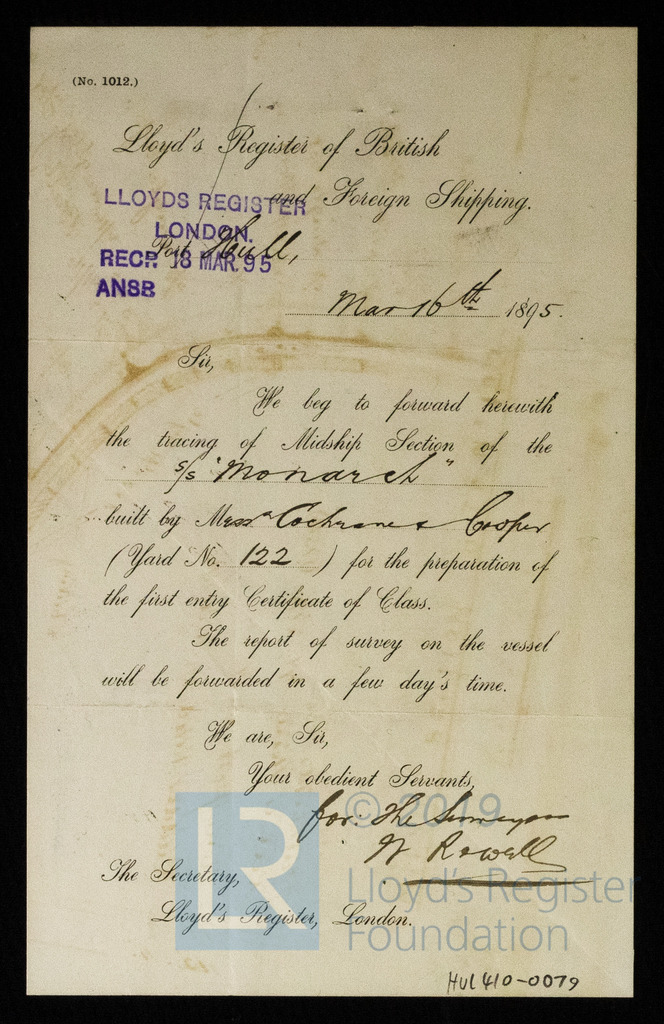 (No. 1012.)
Lloyd's Register of British
and Foreign Shipping.
LLOYDS REGISTER
LONDON.
Port Hull,
RECP. 18 MAR. 95
ANSB
Mar 16th 1895.
Sir,
We beg to forward herewith
the tracing of Midship Section of the
s/s "Monarch"
built by Messrs Cochrane & Cooper
(Yard No. 122) for the preparation of
the first entry Certificate of Class.
The report of survey on the vessel
will be forwarded in a few day's time.
We are, Sir,
Your obedient Servants,
for: The Surveyors
W Rowell
The Secretary,
Lloyd's Register, London.
LR
© 2019
Lloyd's Register
Foundation
HUL410-0079